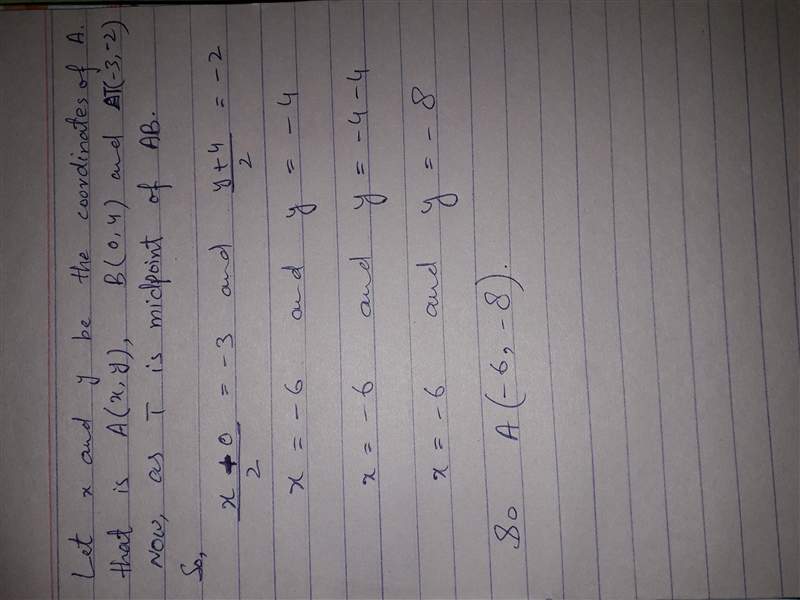 Let x and y be the coordinates of A.
that is A(x,y), B(0,4) and T(-3,-2)
Now, as T is midpoint of AB.
So,
x+0/2 = -3 and y+4/2 = -2
x = -6 and y = -4
x = -6 and y = -4-4
x = -6 and y = -8
So A(-6,-8).